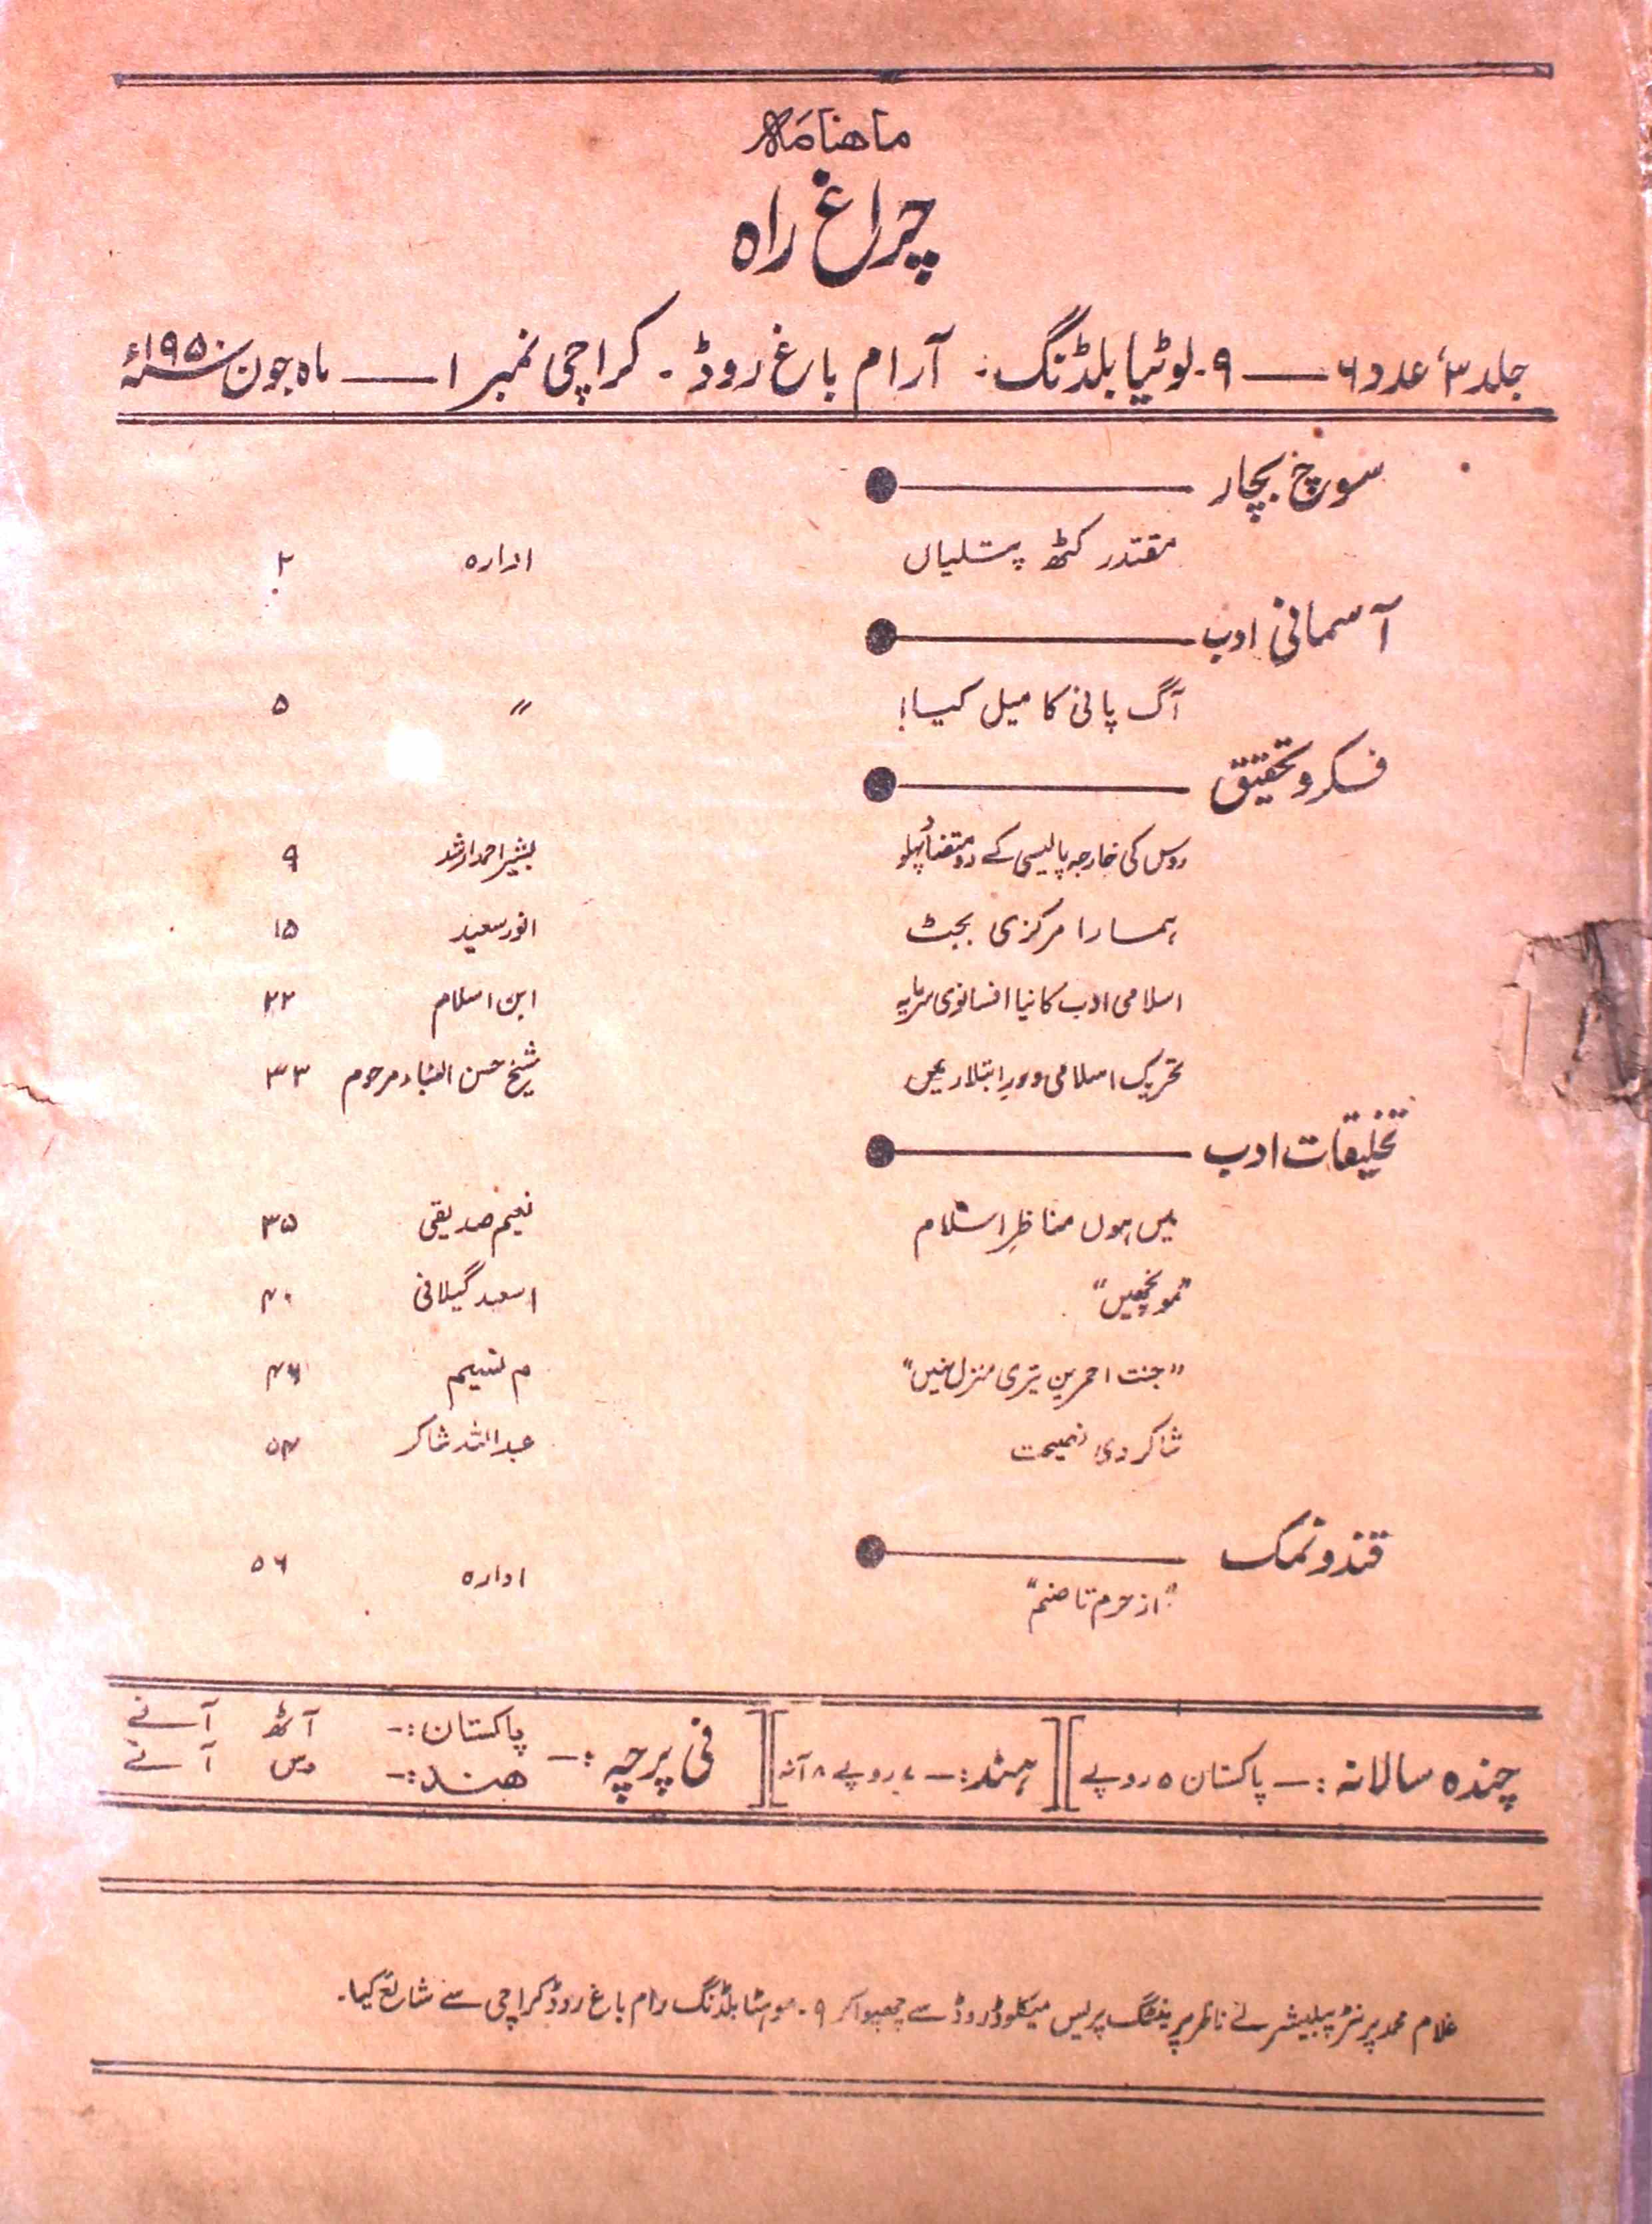 ماهنامه
چراغ راہ
جلد ۳، عدد ۶ — ۹۔ لوٹیا بلڈنگ۔ آرام باغ روڈ۔ کراچی نمبر ۱ — ماہ جون ۱۹۵۰ء
سوچ بچار
مقتدر کٹھ پتلیاں ادارہ ۲
آسمانی ادب
آگ پانی کا میل کیسا! " ۵
فکر و تحقیق
روس کی خارجہ پالیسی کے دو متضاد پہلو بشیر احمد ارشد ۹
ہمارا مرکزی بجٹ انور سعید ۱۵
اسلامی ادب کا نیا افسانوی سرمایہ ابن اسلام ۲۲
تحریک اسلامی دورِ ابتلاء میں شیخ حسن البناء مرحوم ۳۳
تخلیقات ادب
میں ہوں مناظرِ اسلام نعیم صدیقی ۳۵
"مونچھیں" اسعد گیلانی ۴۰
"جنت احمریں تیری منزل نہیں" م نسیم ۴۶
شاکر دی نصیحت عبداللہ شاکر ۵۴
قند و نمک
"از حرم تا صنم" ادارہ ۵۶
چندہ سالانہ :— پاکستان ۵ روپے ][ ہند :— ۷ روپے ۸ آنہ ][ فی پرچہ :— پاکستان :- آٹھ آنے
ھند :- دس آنے
غلام محمد پرنٹر پبلیشر نے ناظر پرنٹنگ پریس میکلوڈ روڈ سے چھپوا کر ۹۔ بلڈنگ رام باغ روڈ کراچی سے شائع کیا۔